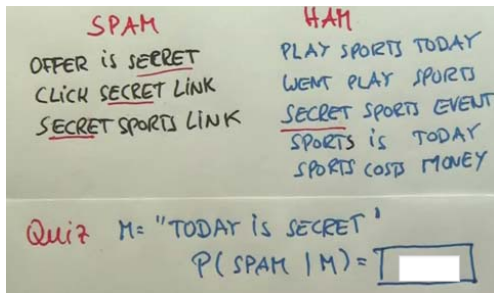 SPAM
OFFER is SECRET
CLICK SECRET LINK
SECRET SPORTS LINK
HAM
PLAY SPORTS TODAY
WENT PLAY SPORTS
SECRET SPORTS EVENT
SPORTS is TODAY
SPORTS COSTS MONEY
Quiz M= "TODAY is SECRET"
P(SPAM | M) =